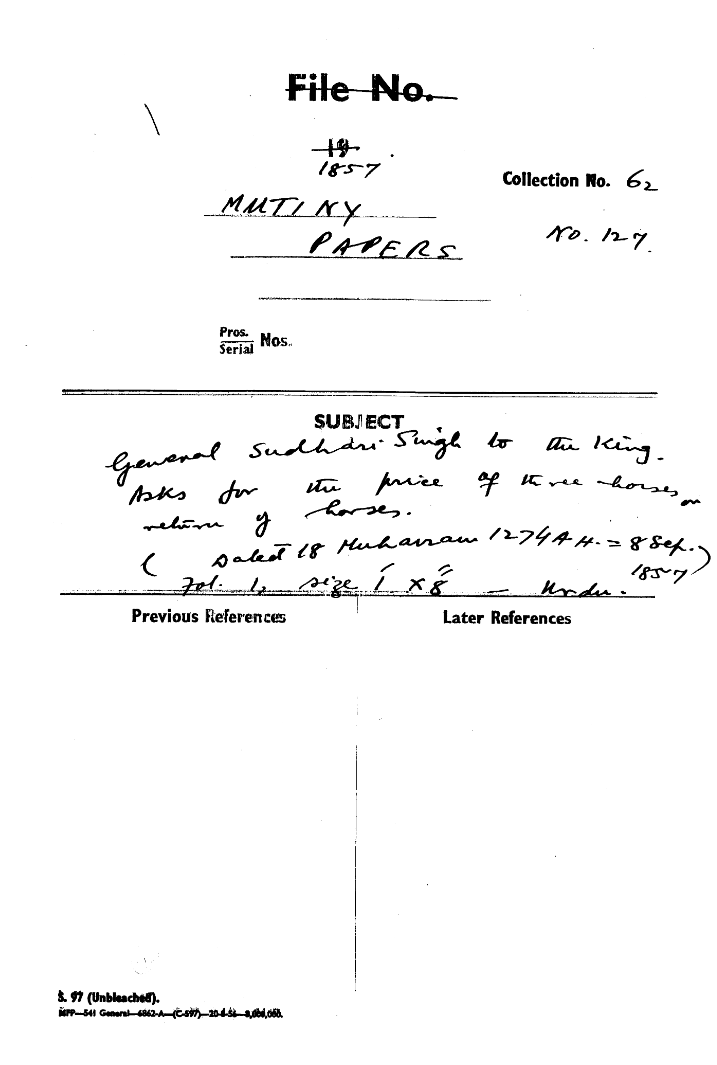 File No.
19
1857
Collection No. 62
MUTINY
No. 127
PAPERS
Pros.
Serial Nos.
SUBJECT
General Sudhari Singh to the King.
Asks for the price of three horses or
return of horses.
( Dated 18 Muharram 1274 A.H. = 8 Sep.
1857)
Fol. 1, size 1' x 8" — Urdu.
Previous References
Later References
S. 97 (Unbleached).
MFP—541 General—6862-A—(C-597)—